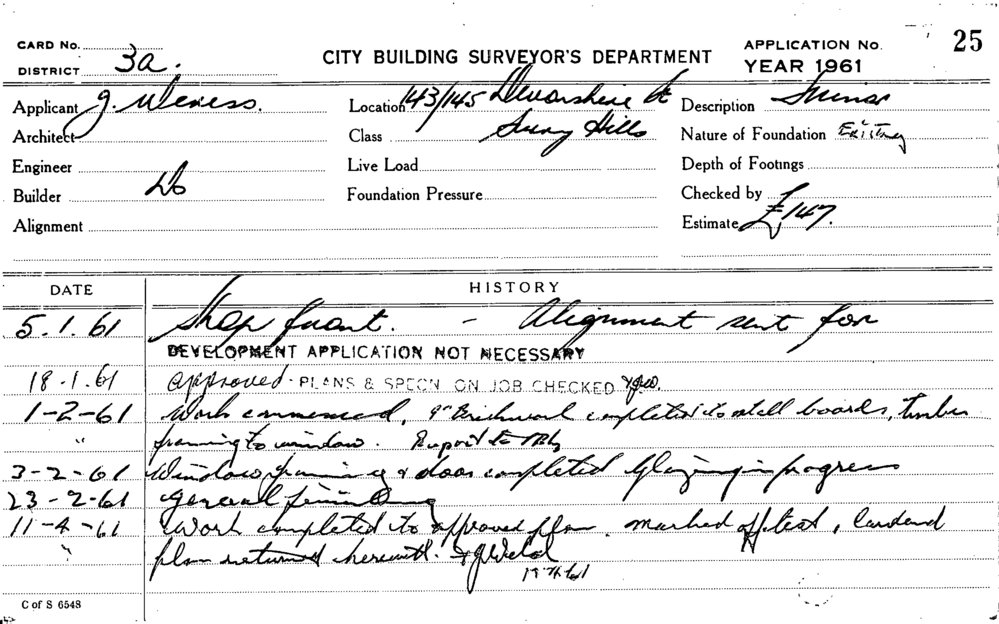 CARD No.
DISTRICT 3a.
CITY BUILDING SURVEYOR'S DEPARTMENT
APPLICATION No. 25
YEAR 1961
Applicant J.
Location 143/145 Devonshire St
Description
Architect
Class Surry Hills
Nature of Foundation Existing
Engineer
Live Load
Depth of Footings
Builder Do
Foundation Pressure
Checked by
Alignment
Estimate £147.
DATE
HISTORY
5.1.61 Shop front. - Alignment sent for
DEVELOPMENT APPLICATION NOT NECESSARY
18.1.61 approved. PLANS & SPECN ON JOB CHECKED
1-2-61 Work commenced, 9" Brickwork completed to stall boards, timber
" framing to window. Report to
3-2-61 Window framing & door completed Glazing in progress
23-2-61 General finishing
11-4-61 Work completed to approved plan. marked off list, card and
" plan returned herewith.
C of S 6548